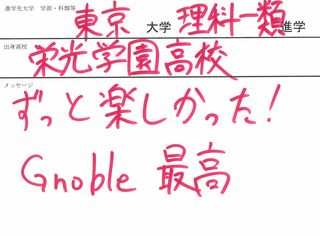 進学先大学 学部・科類等
東京大学 理科一類進学
出身高校
栄光学園高校
メッセージ
ずっと楽しかった!
Gnoble 最高